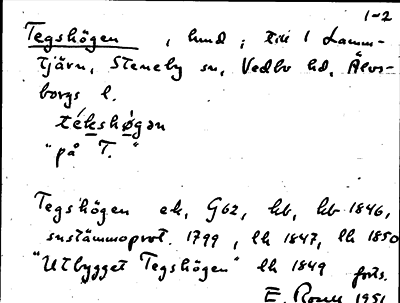 1-2
Tegshögen , hmd ; till 1 Lamm-
tjärn, Steneby sn, Vedbo hd, Älvs-
borgs l.
tékshøgən
"på T."
Tegshögen ek, G62, kb, kb 1846,
snstämmoprot. 1799, lh 1847, lh 1850
"Utbygget Tegshögen" lh 1849 forts.
E. Rosell 1951